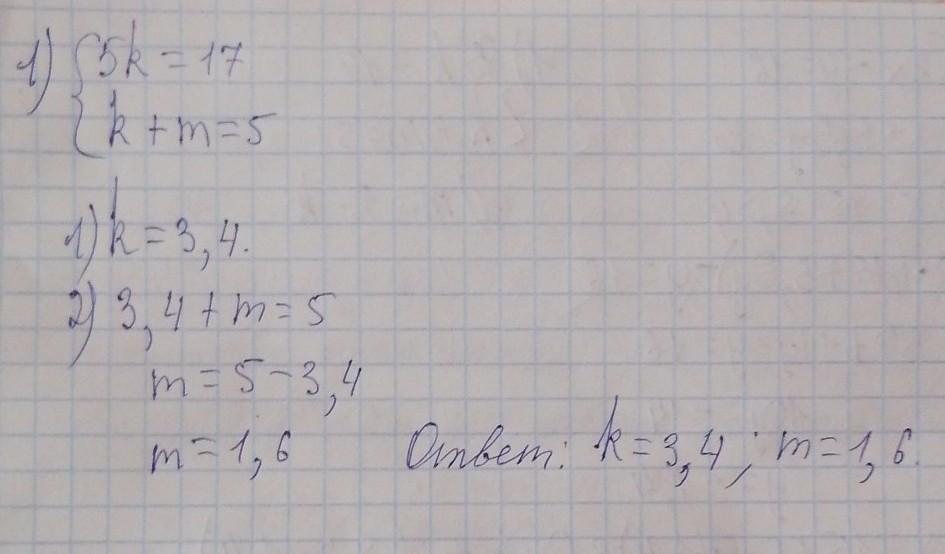 1) { 5k = 17
k + m = 5
1) k = 3,4.
2) 3,4 + m = 5
m = 5 - 3,4
m = 1,6 Ответ: k = 3,4; m = 1,6.